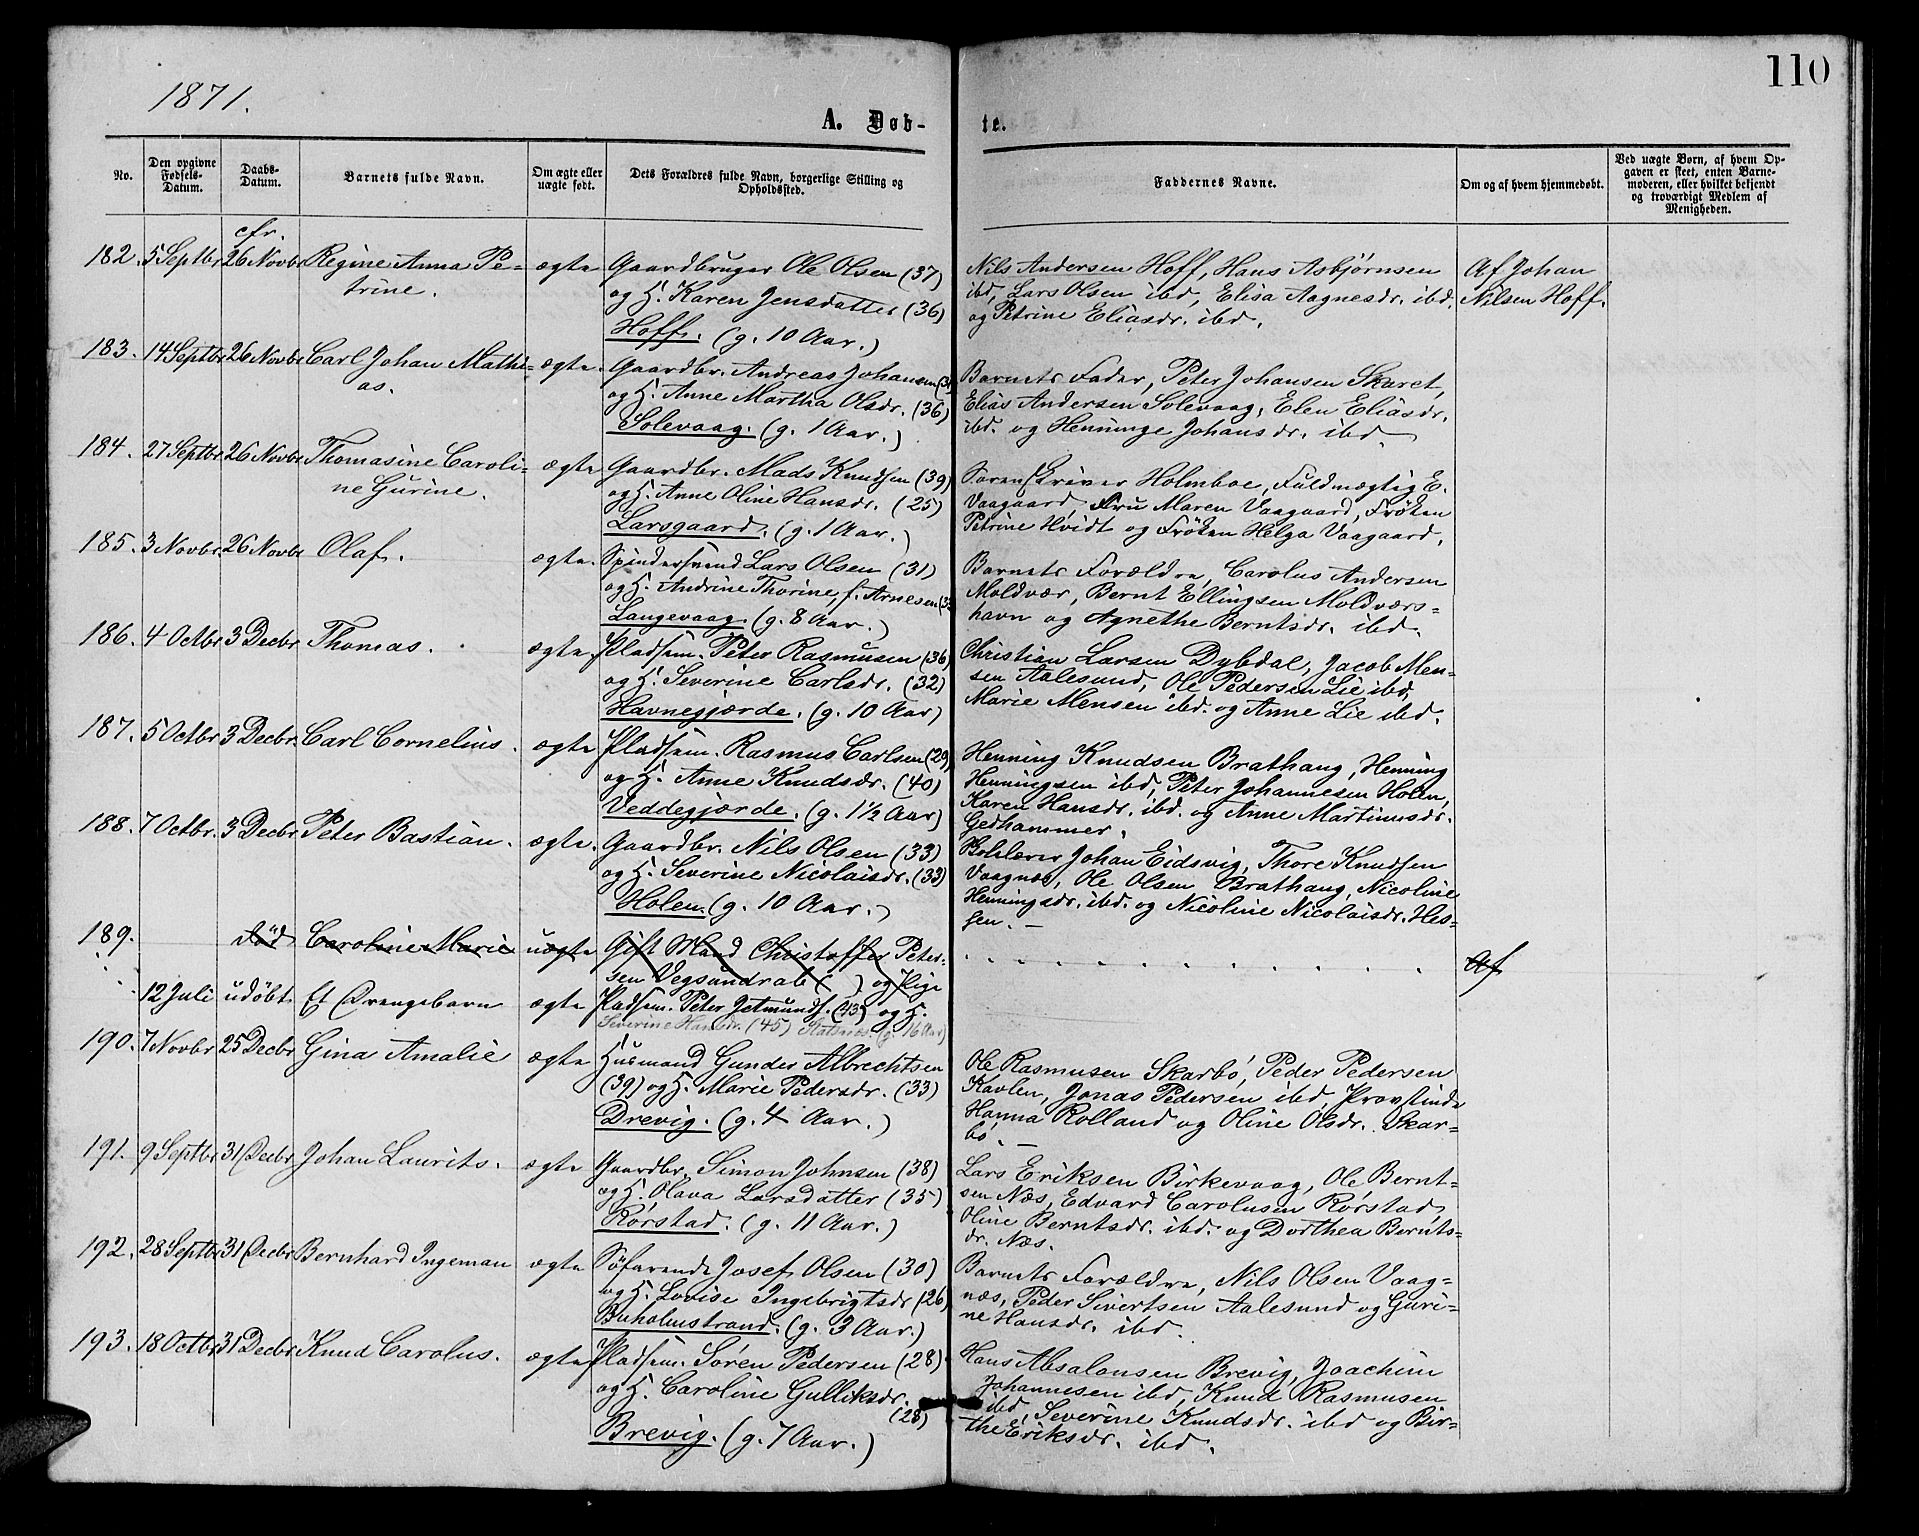 1871.
110
A. Døb-
te.
No.
Den opgivne
Fødsels-
Datum.
Daabs-
Datum.
Barnets fulde Navn.
Om ægte eller
uægte født.
Dets Forældres fulde Navn, borgerlige Stilling og
Opholdssted.
Faddernes Navne.
Om og af hvem hjemmedøbt.
Ved uægte Børn, af hvem Op-
gaven er skeet, enten Barne-
moderen, eller hvilket bekjendt
og troværdigt Medlem af
Menigheden.
cfr.
182. 5 Septbr 26 Novbr Regine Anna Pe-
trine.
ægte
Gaardbruger Ole Olsen (37)
og H. Karen Jensdatter (36)
Hoff. (g. 10 Aar.)
Nils Andersen Hoff, Hans Asbjørnsen
ibd, Lars Olsen ibd, Elisa Aagnesdr. ibd.
og Petrine Eliasdr. ibd.
Af Johan
Nilsen Hoff.
183. 14 Septbr 26 Novbr Carl Johan Mathi-
as.
ægte.
Gaardbr. Andreas Johansen
og H. Anne Martha Olsdr. (36)
Solevaag. (g. 1 Aar.)
Barnets Fader, Peter Johansen Skaret,
Elias Andersen Solevaag, Elen Eliasdr.
ibd. og Henninge Johansdr. ibd.
184. 27 Septbr 26 Novbr Thomasine Caroli-
ne Gurine.
ægte
Gaardbr. Mads Knudsen (39)
og H. Anne Oline Hansdr. (25)
Larsgaard. (g. 1 Aar.)
Sorenskriver Holmboe, Fuldmægtig E.
Vaagaard, Fru Maren Vaagaard, Frøken
Petrine Hvidt og Frøken Helga Vaagaard.
185. 3 Novbr 26 Novbr Olaf.
ægte.
Spindersvend Lars Olsen (31)
og H. Andrine Thorine, f. Arnesen
Langevaag (g. 8 Aar.)
Barnets Forældre, Carolus Andersen
Moldvær, Bernt Ellingsen Moldværs-
havn og Agnethe Berntsdr. ibd.
186. 4 Octbr 3 Decbr Thomas.
ægte
Pladsem. Peter Rasmusen (36)
og H. Severine Carlsdr. (32)
Havnegjærde. (g. 10 Aar)
Christian Larsen Dybdal, Jacob Men-
sen Aalesund, Ole Pedersen Lie ibd,
Marie Mensen ibd. og Anne Lie ibd.
187. 5 Octbr 3 Decbr. Carl Cornelius.
ægte
Pladsem. Rasmus Carlsen (29)
og H. Anne Knudsdr. (40)
Veddegjærde. (g. 1½ Aar)
Henning Knudsen Brathaug, Henning
Henningsen ibd, Peter Johannesen Holen,
Karen Hansdr. ibd. og Anne Martinusdr.
Gedhammer.
188. 7 Octbr. 3 Decbr Peter Bastian.
ægte.
Gaardbr. Nils Olsen (33)
og H. Severine Nicolaisdr. (33)
Holen. (g. 10 Aar.)
Johan Eidsvig, Thore Knudsen
Vaagnæs, Ole Olsen Brathaug, Nicoline
Henningsdr. ibd. og Nicoline Nicolaisdr. Hes-
sen.
189. død Caroline Marie uægte Gift Mand Christoffer Peter-
sen Vegsundrab ( ) og Pige
Af
12 Juli udøbt Et Drengebarn ægte Pladsem. Peter Jetmunds. (43) og H.
Severine Hansdr. (45) (g. 16 Aar)
190. 7 Novbr 25 Decbr Gina Amalie
ægte
Husmand Gunder Albrechtsen
(39) og H. Marie Pedersdr. (33)
Drevig. (g. 4 Aar.)
Ole Rasmusen Skarbö, Peder Pedersen
Kavlen, Jonas Pedersen ibd, Provstinde
Hanna Rolland og Oline Olsdr. Skar-
bö.
191. 9 Septbr 31 Decbr Johan Laurits.
ægte
Gaardbr. Simon Johnsen (38)
og H. Olava Larsdatter (35)
Rörstad. (g. 11 Aar.)
Lars Eriksen Birkevaag, Ole Bernt-
sen Næs, Edvard Carolusen Rörstad,
Oline Berntsdr. ibd. og Dorthea Bernts-
dr. Næs.
192. 28 Septbr 31 Decbr Bernhard Ingeman
ægte
Söfarende Josef Olsen (30)
og H. Lovise Ingebrigtsdr (26)
Buholmstrand. (g. 3 Aar.)
Barnets Forældre, Nils Olsen Vaag-
næs, Peder Sivertsen Aalesund og Guri-
ne Hansdr. ibd.
193. 18 Octbr 31 Decbr Knud Carolus.
ægte
Pladsem. Sören Pedersen (28)
og H. Caroline Gulliksdr.
(28)
Brevig. (g. 7 Aar.)
Hans Absalonsen Brevig, Joachim
Johannesen ibd, Knud Rasmusen
ibd, Severine Knudsdr. ibd og Bir-
the Eriksdr. ibd.